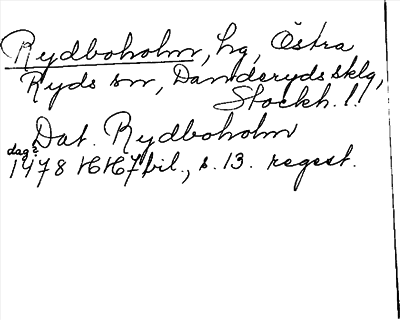 Rydboholm, hg, Östra
Ryds sn, Danderyds sklg,
Stockh. l.
Dat. Rydboholm
dag?
1478 HH7 bil., s. 13. regest.